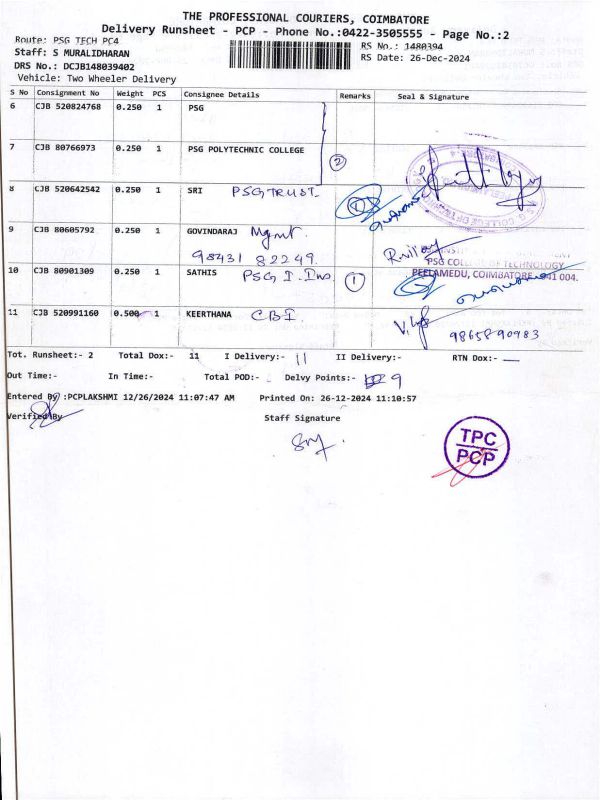 THE PROFESSIONAL COURIERS, COIMBATORE
Delivery Runsheet - PCP - Phone No.:0422-3505555 - Page No.:2
Route: PSG TECH PC4 RS No.: 1480394
Staff: S MURALIDHARAN RS Date: 26-Dec-2024
DRS No.: DCJB148039402
Vehicle: Two Wheeler Delivery
S No Consignment No Weight PCS Consignee Details Remarks Seal & Signature
6 CJB 520824768 0.250 1 PSG
7 CJB 80766973 0.250 1 PSG POLYTECHNIC COLLEGE 2
8 CJB 520642542 0.250 1 SRI PSG TRUST. 1
9 CJB 80605792 0.250 1 GOVINDARAJ Mgmt.
98431 82249.
PSG COLLEGE OF TECHNOLOGY
PEELAMEDU, COIMBATORE - 641 004.
10 CJB 80901309 0.250 1 SATHIS PSG I. Ins 1
11 CJB 520991160 0.500 1 KEERTHANA CBI
9865890983
Tot. Runsheet:- 2 Total Dox:- 11 I Delivery:- 11 II Delivery:- RTN Dox:- —
Out Time:- In Time:- Total POD:- Delvy Points:- 9
Entered By :PCPLAKSHMI 12/26/2024 11:07:47 AM Printed On: 26-12-2024 11:10:57
Verified By Staff Signature
TPC
PCP